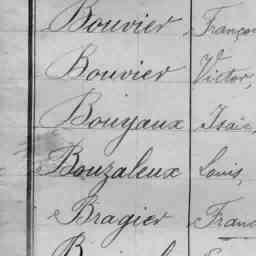 Bouvier, Franço
Bouvier Victor,
Bouyaux Isaïe,
Bouzaleux Louis,
Bragier Fran